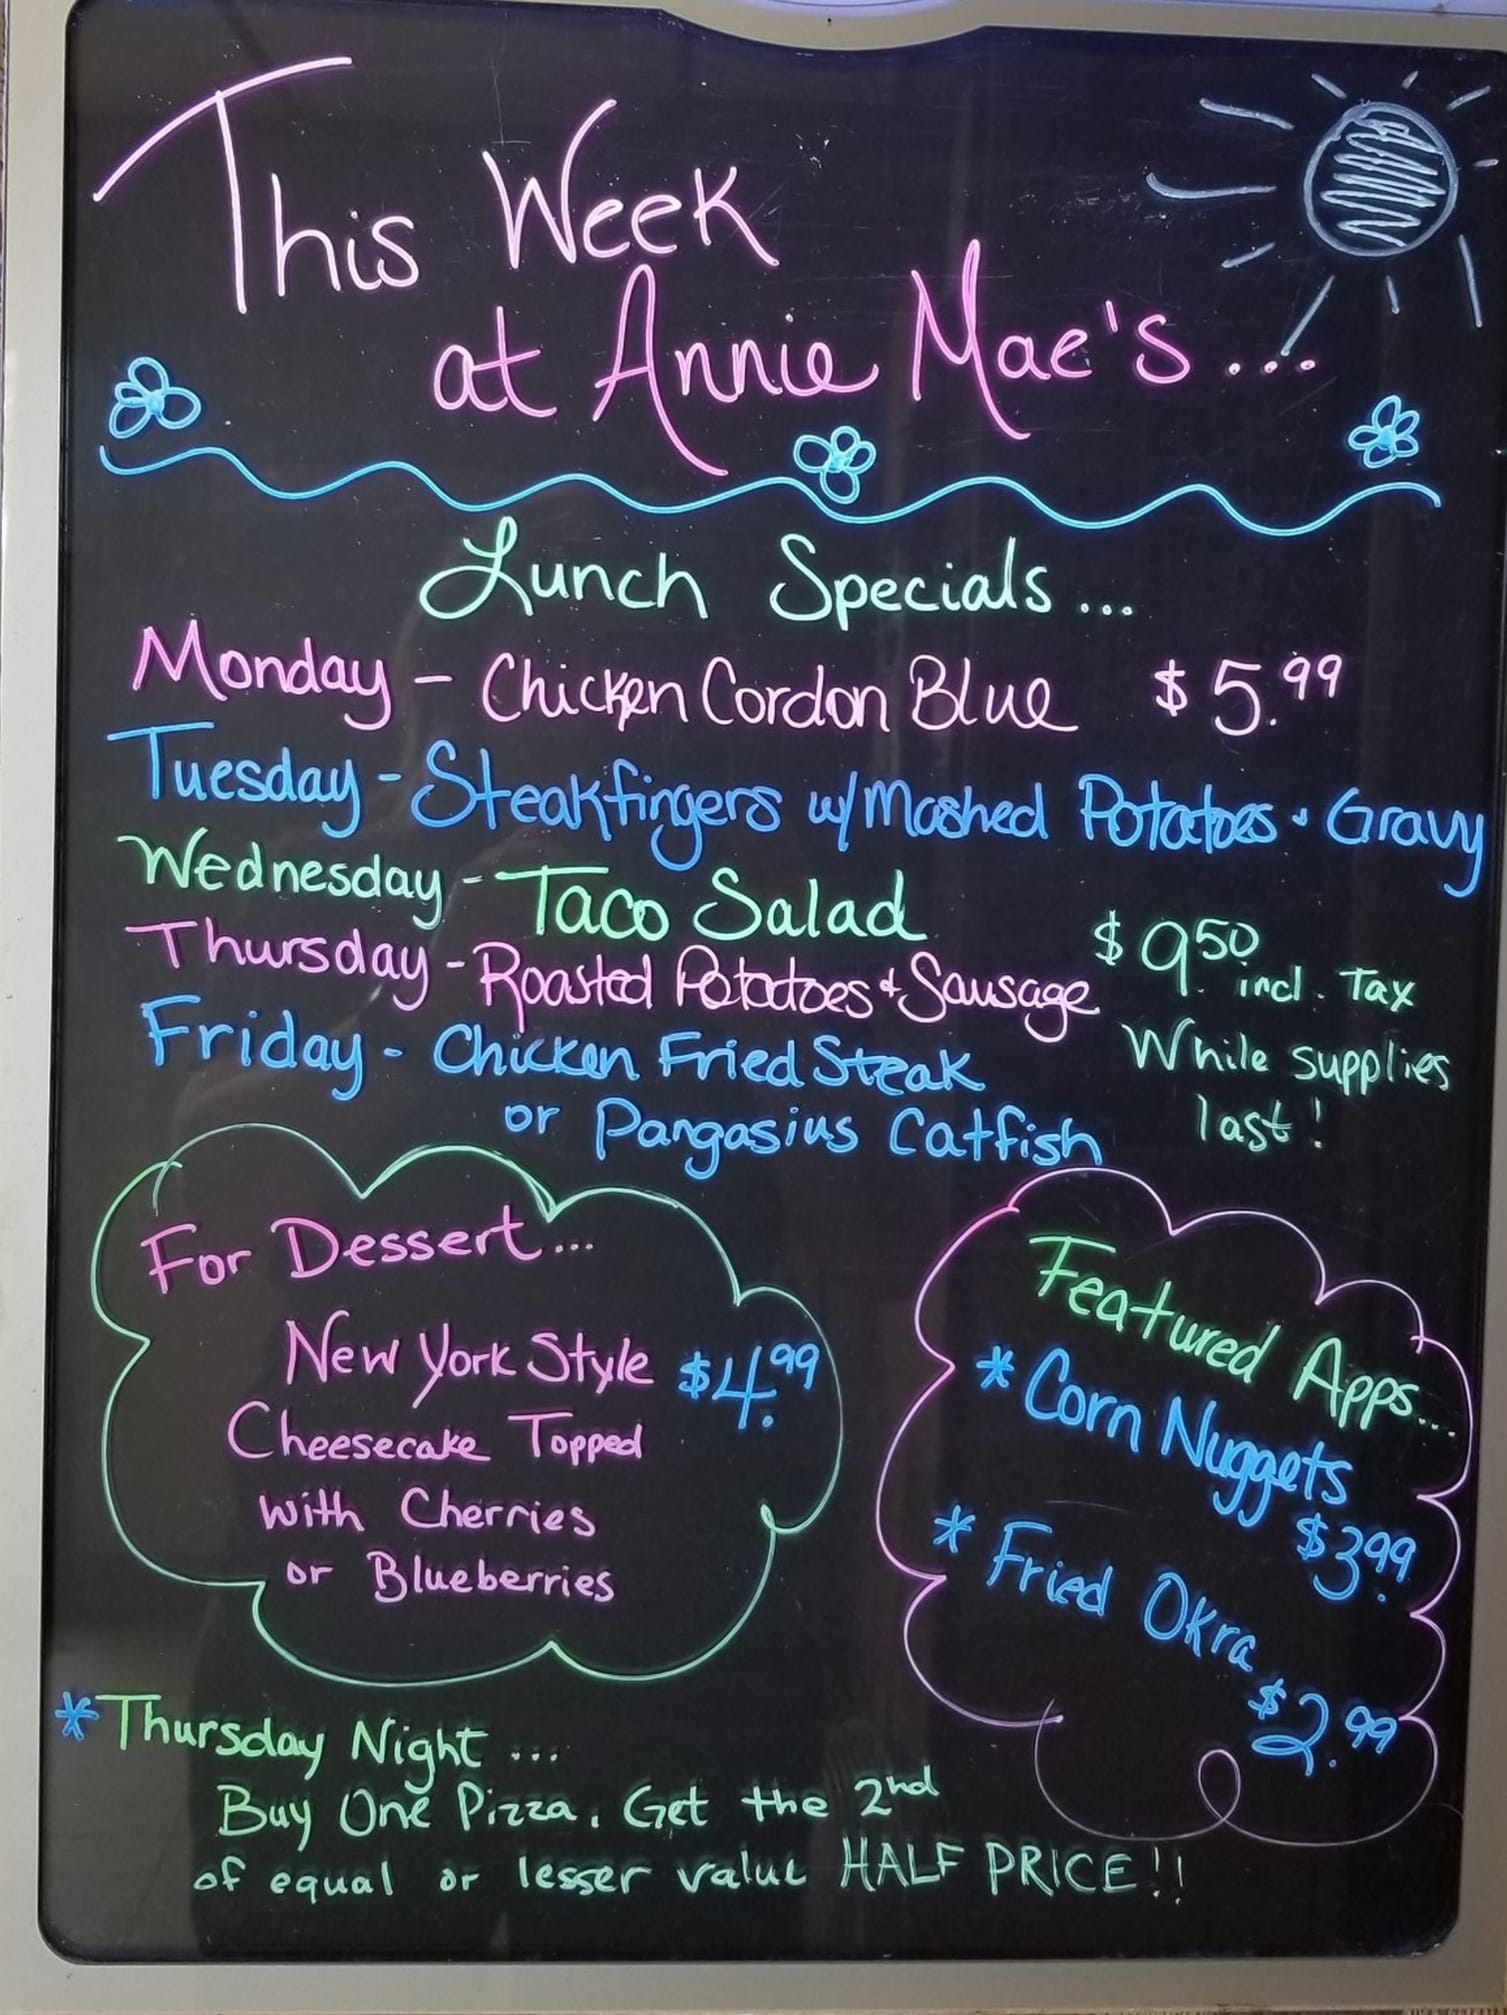 This Week
at Annie Mae's...
Lunch Specials...
Monday - Chicken Cordon Blue $5.99
Tuesday - Steakfingers w/Mashed Potatoes + Gravy
Wednesday - Taco Salad
Thursday - Roasted Potatoes + Sausage
Friday - Chicken Fried Steak
or Pangasius Catfish
$9.50 incl. Tax
While supplies
last!
For Dessert...
New York Style $4.99
Cheesecake Topped
with Cherries
or Blueberries
Featured Apps...
* Corn Nuggets
$3.99
* Fried Okra
$2.99
*Thursday Night...
Buy One Pizza, Get the 2nd
of equal or lesser value HALF PRICE!!